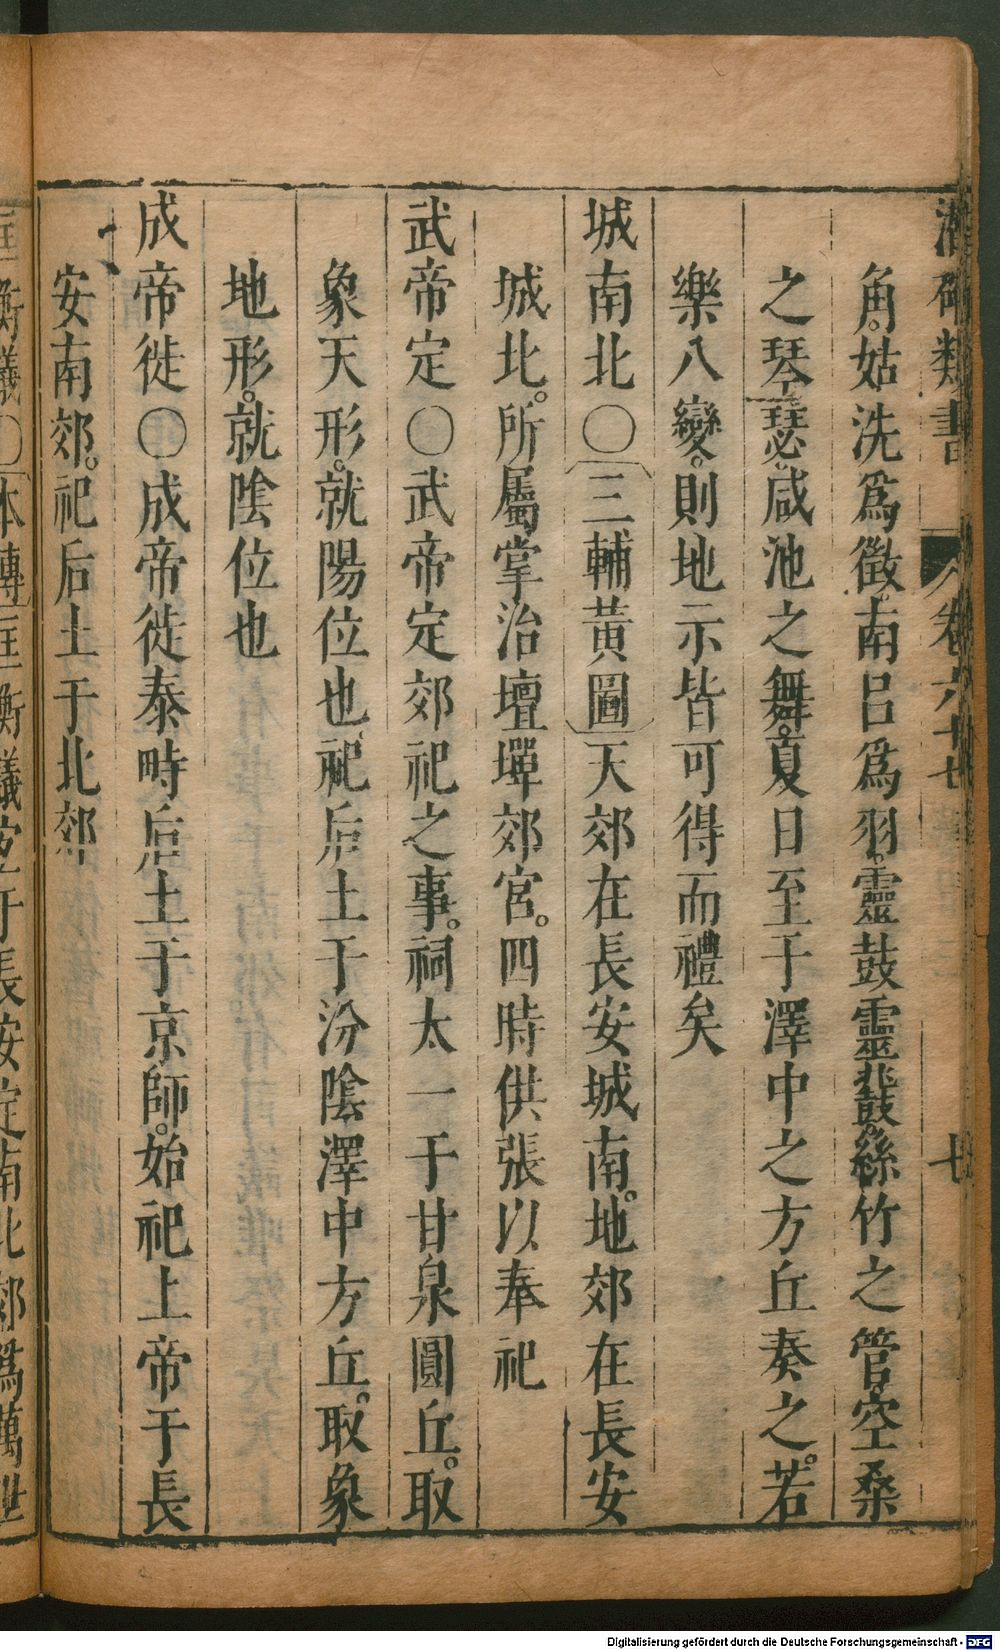 類書 卷六十七 七
角。姑洗爲徵。南呂爲羽。靈鼓靈鼗。絲竹之管。空桑
之琴瑟。咸池之舞。夏日至于澤中之方丘奏之。若
樂八變。則地示皆可得而禮矣
城南北〇三輔黃圖天郊在長安城南。地郊在長安
城北。所屬掌治壇墠郊宮。四時供張以奉祀
武帝定〇武帝定郊祀之事。祠太一于甘泉圓丘。取
象天形。就陽位也。祀后土于汾陰澤中方丘。取象
地形。就陰位也
成帝徙〇成帝徙泰畤后土于京師。始祀上帝于長
安南郊。祀后土于北郊
匡衡議〇本傳匡衡議 于長安定南北郊爲萬世
Digitalisierung gefördert durch die Deutsche Forschungsgemeinschaft - DFG